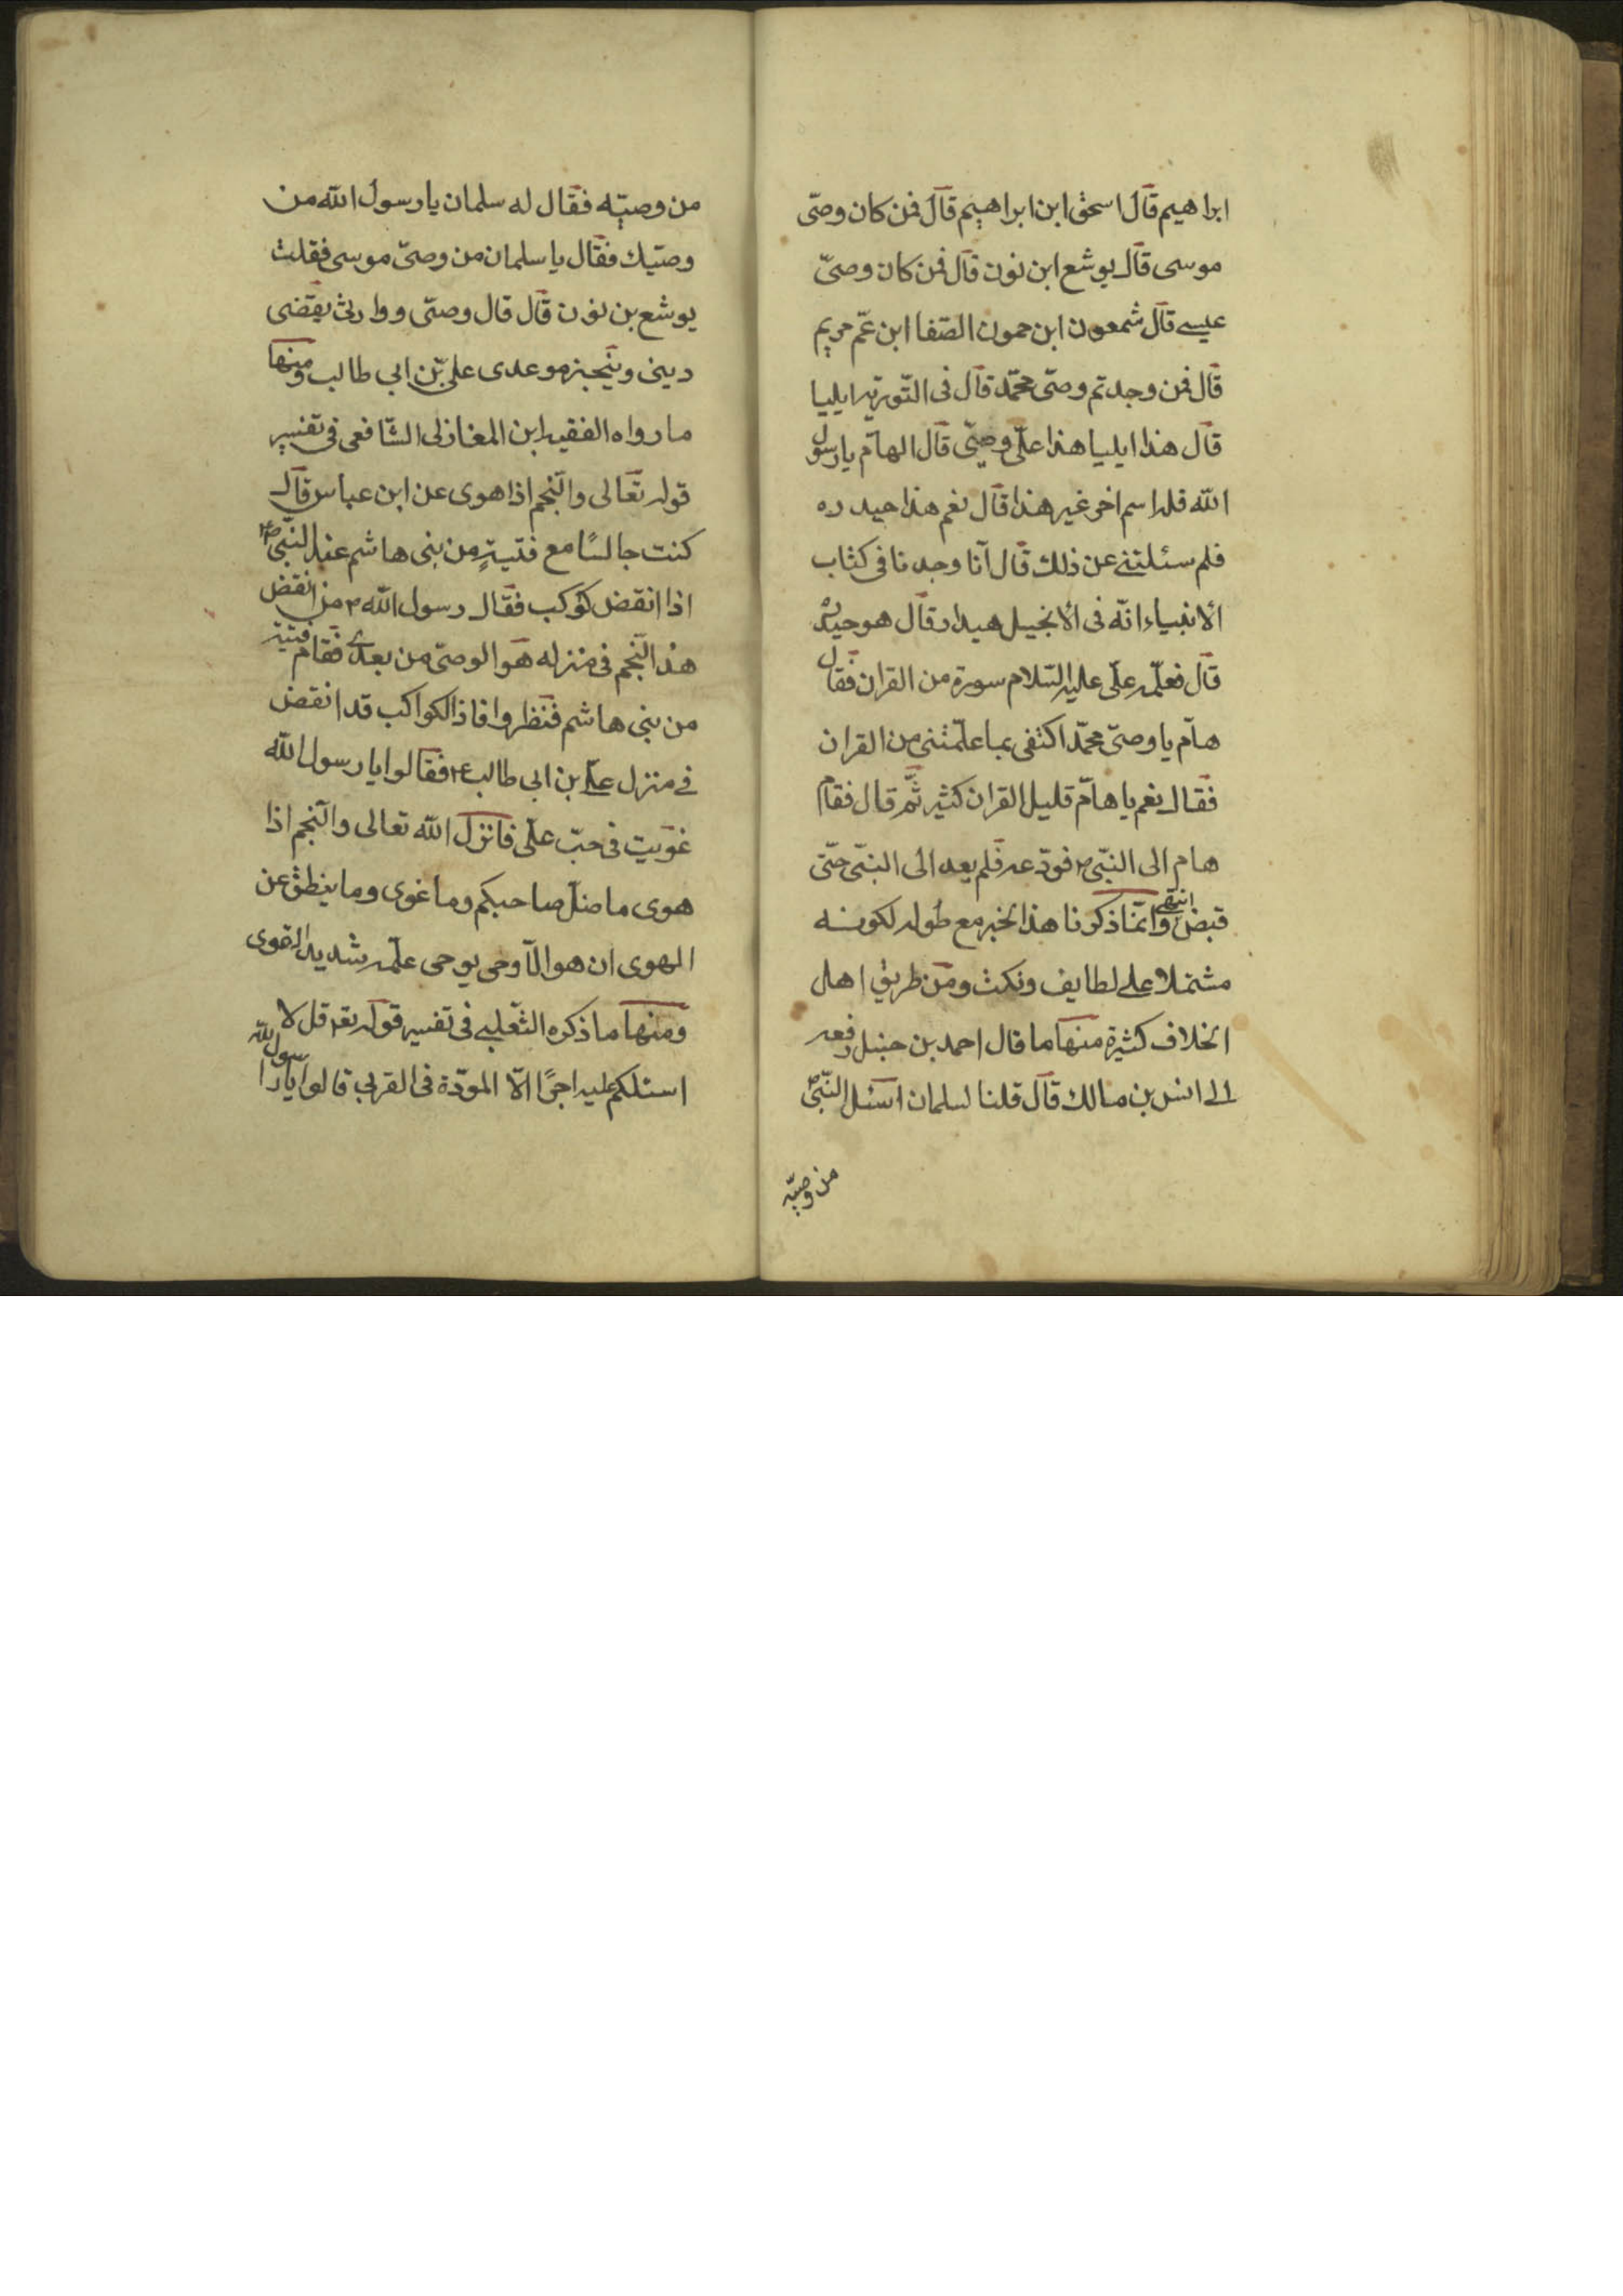 ابراهيم قال اسحق ابن ابراهيم قال فمن كان وصّى
موسى قال يوشع ابن نون قال فمن كان وصىّ
عيسے قال شمعون ابن حمون الصّفا ابن عمّ مريم
قال فمن وجدتم وصّى محمّد قال فى التّورية ايليا
قال هذا ايليا هذا علّى وصيّى قال الهامّ يا رسول
الله فله اسم اخر غير هذا قال نعم هذا حيدره
فلم سئلتنے عن ذلك قال انّا وجدنا فى كتاب
الانبياء انّه فى الانجيل هيدار قال هو حيدره
قال فعلّمه علّى عليه السّلام سورة من القران فقال
هامّ يا وصىّ محمّد اكتفى بما علّمتنى من القران
فقال نعم يا هامّ قليل القران كثير ثمّ قال فقام
هام الى النبّى ۲ فودّعه فلم يعد الى النبّى حتّى
قبض انتهى وانّما ذكرنا هذا الخبر مع طوله لكونه
مشتملا على لطايف ونكت ومن طريق اهل
الخلاف كثيرة منها ما قال احمد بن حنبل رفعه
الے انس بن مالك قال قلنا لسلمان اسئل النّبّى ص
من وصيّه
من وصيّه فقال له سلمان يا رسول الله من
وصيّك فقال يا سلمان من وصىّ موسى فقلت
يوشع بن نون قال قال وصيّى ووارثى يقضى
دينى وينجز موعدى علىّ بن ابى طالب ومنها
ما رواه الفقيه ابن المغازلى الشّافعى فى تفسير
قوله تعالى والنّجم اذا هوى عن ابن عباس قال
كنت جالسًا مع فتيةٍ من بنى هاشم عند النّبّى ص
اذا انقض كوكب فقال رسول الله ۲ من انقض
هذا النّجم فى منزله هو الوصىّ من بعدى فقام فتية
من بنى هاشم فنظروا فاذا الكواكب قد انقض
فے منزل علے بن ابى طالب ۴ فقالوا يا رسول الله
غويت فى حبّ علّى فانزل الله تعالى والنّجم اذا
هوى ما ضلّ صاحبكم وما غوى وما ينطق عن
الهوى ان هو الّا وحى يوحى علّمه شديد القوى
ومنها ما ذكره الثعلبے فى تفسير قوله تعه قل لا
اسئلكم عليه اجرًا الّا المودّة فى القربى قالوا يا رسول الله